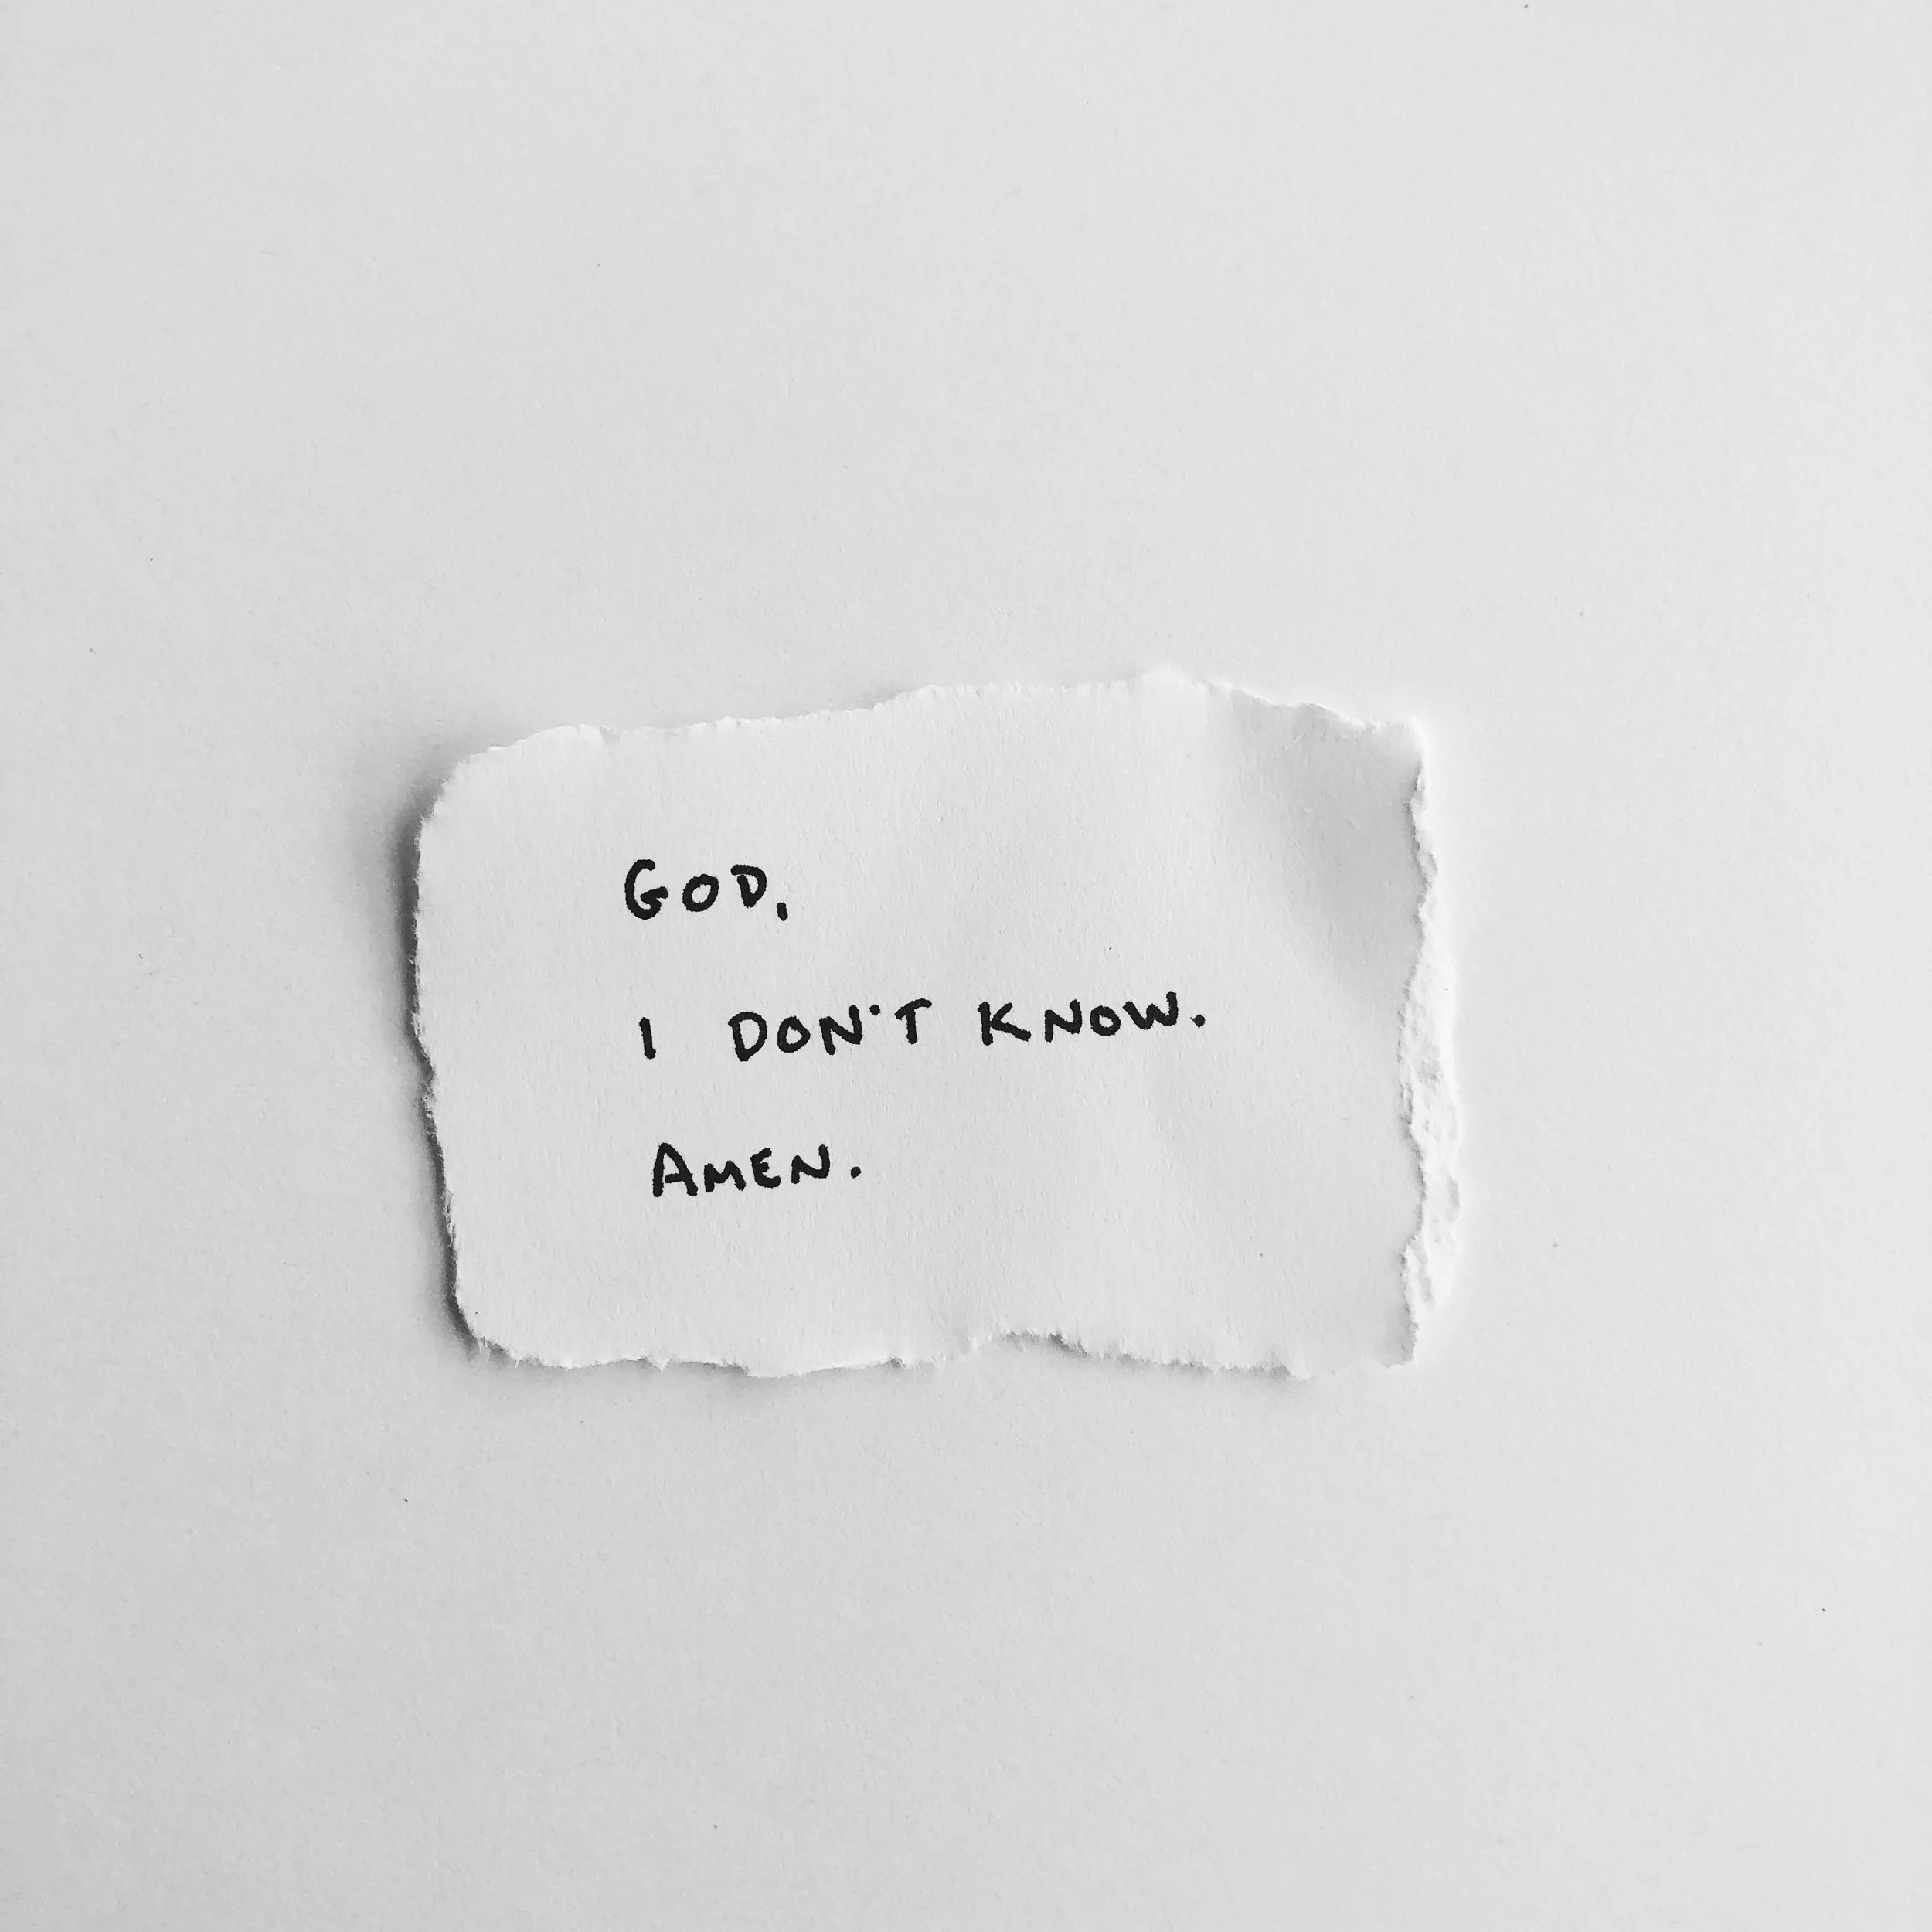 GOD,
I DON'T KNOW.
AMEN.